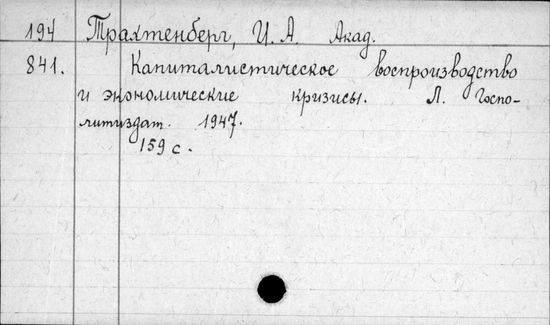 194 Трахтенберг, И. А. Акад.
841. Капиталистическое воспроизводство
и экономические кризисы. Л. Госпо-
литиздат. 1947.
159 с.